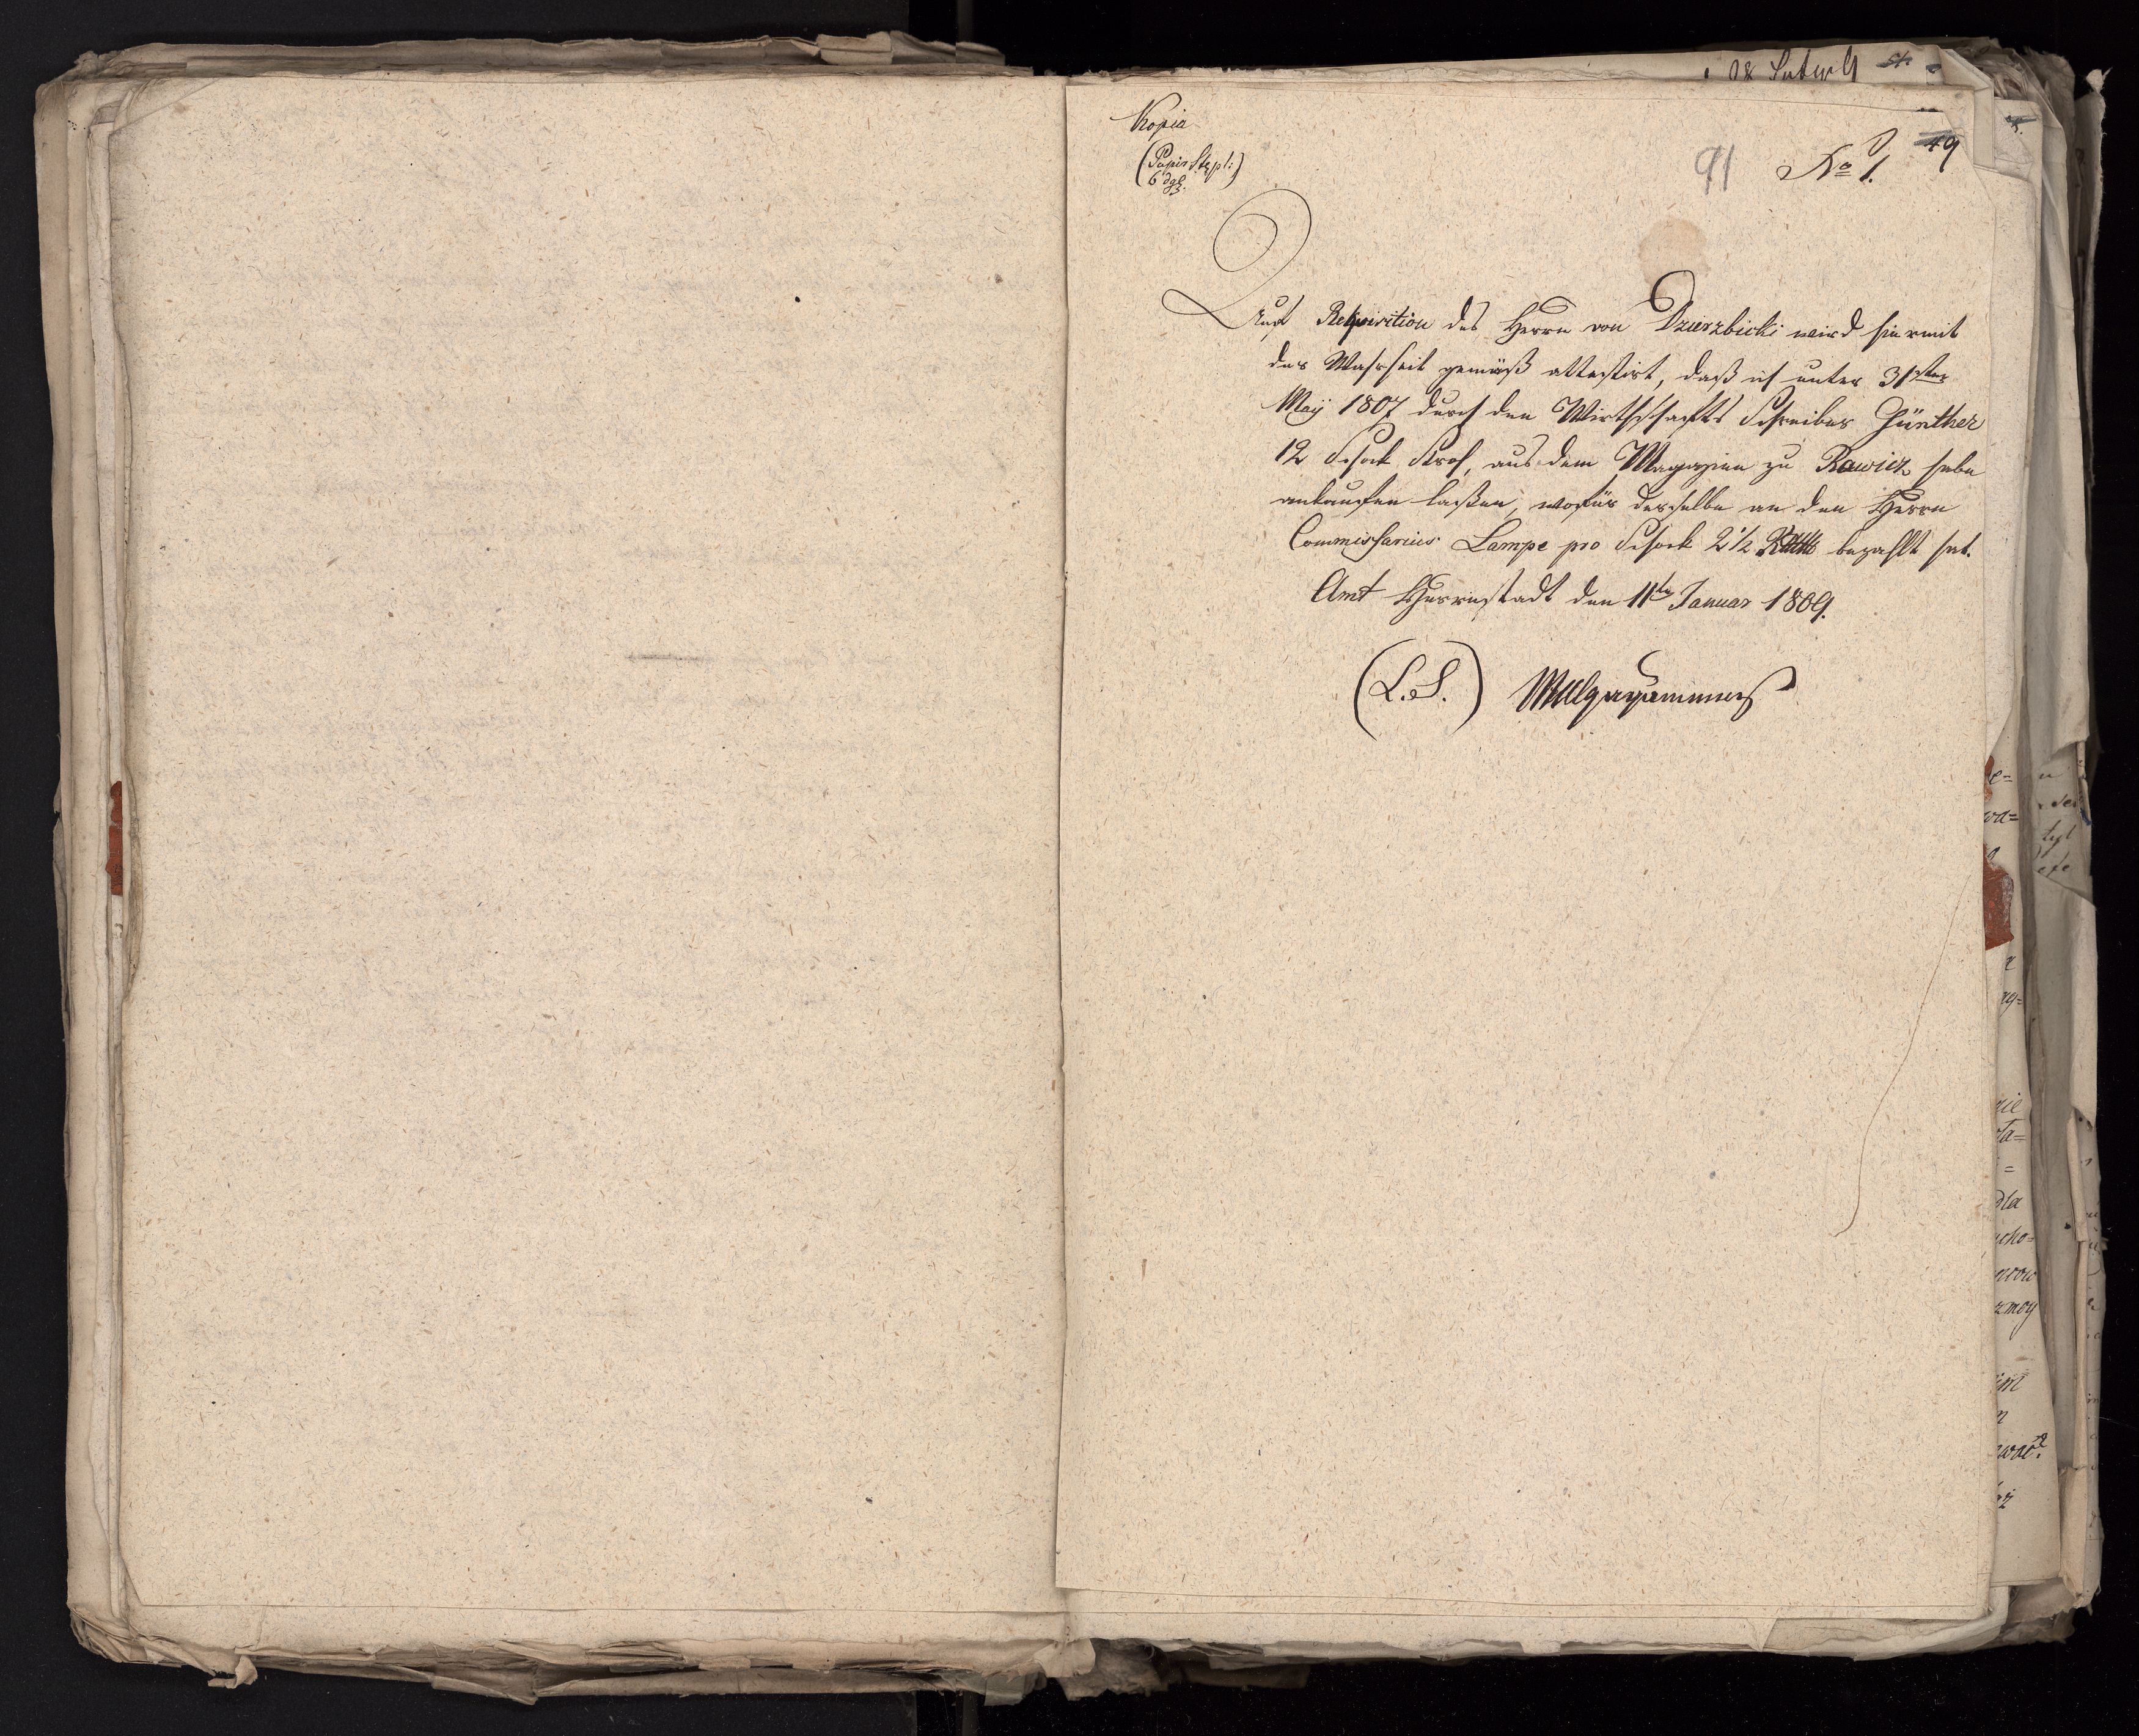 Kopia
(Papir Stępl:
6 dgl.)
91 No 1. 49
Auf Requisition des Herrn von Dzierzbicki wird hiermit
der Wahrheit gemäß attestirt, daß ich unter 31ster
May 1807 durch den Wirthschafts Schreiber Günther
12 Schock Stroh, aus dem Magazien zu Rawicz habe
ankaufen laßen, wofür derselbe an den Herrn
Commissarius Lampe pro Schock 2 1/2 bezahlt hat.
Amt Herrnstadt den 11ten Januar 1809.
(L.S.)